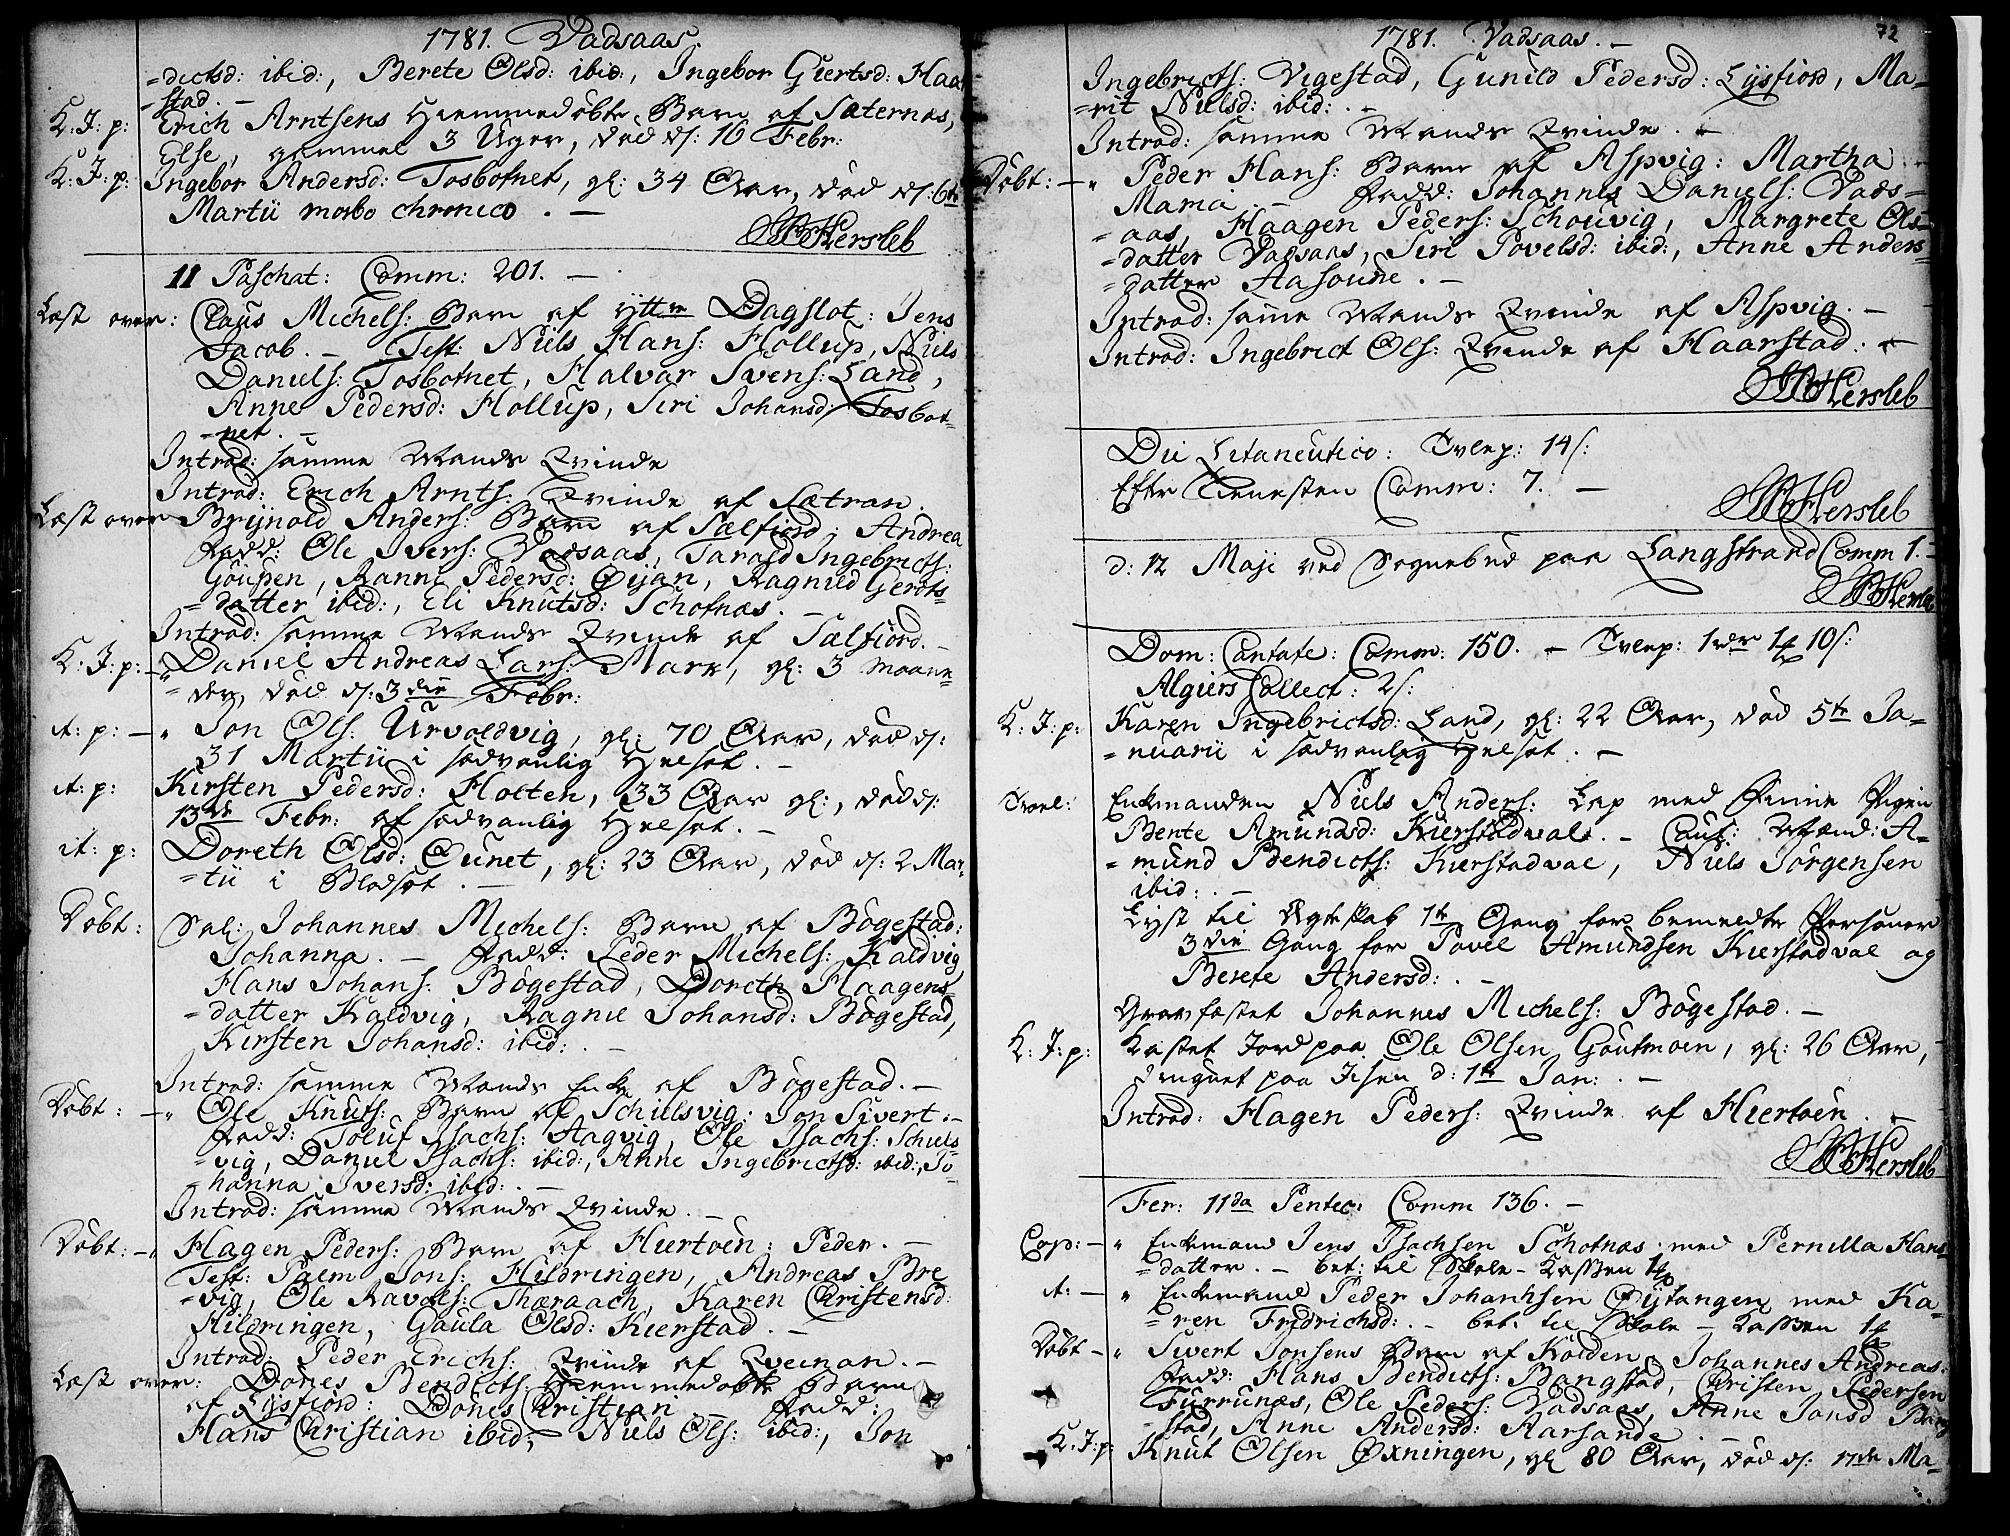 1781. Vadsaas.
=dictsd: ibid:, Berete Olsd: ibid:, Ingebor Giertsd: Haar
=stad. –
K: J: p: Erich Arntsens Hiemmedøbte Barn af Sæternes,
Else, gammel 3 Uger, død d: 16 Febr:
K: J: p: Ingebor Andersd: Tosbotnet, gl: 34 Aar, død d: 6te
Martii morbo chronico. –
Hersleb
11 Paschat: Comm: 201. –
Læst over: Claus Michels: Barn af Ytter Dagslot: Jens
Jacob. – Test: Niels Hans: Hollup, Niels
Daniels: Tosbotnet, Halvar Svens: Land,
Anne Pedersd: Hollup, Siri Johansd: Tosbot=
=net. –
Introd: samme Mands Qvinde
Introd: Erich Arnts: Qvinde af Sætran.
Læst over Brynold Anders: Barn af Sælfiord: Andrea
Fadd: Ole Ivers: Vadsaas, Tarald Ingebricts:
Goupen, Ranni Pedersd: Øyan, Ragnild Gerdts=
=datter ibid:, Eli Knutsd: Schotnæs. –
Introd: samme Mands Qvinde af Sælfiord. –
K: J: p: – Daniel Andreas Lars: Marr, gl: 3 Maane=
=der, død d: 3die Febr:
it: p: – " Jon Ols: Urvoldvig, gl: 70 Aar, død d:
31 Martii i sædvanlig Helsot. –
it: p: Kirsten Pedersd: Holten, 33 Aar gl:, død d:
13de Febr: af sædvanlig Helsot. –
it: p: Doreth Olsd: Ounet, gl: 23 Aar, død d: 2 Mar=
=tii i Blodsot. –
Døbt: Sal: Johannes Michels: Barn af Bøgestad:
Johanna. – Fadd: Peder Michels: Kaldvig
Hans Johans: Bøgestad, Doreth Haagens=
=datter Kaldvig, Ragnil Johansd: Bøgestad,
Kirsten Johansd: ibid: –
Introd: samme Mands Enke af Bøgestad. –
Døbt: – " Ole Knuts: Barn af Schielsvig: Jon Sivert. –
Fadd: Toluf Isachs: Aagvig, Ole Isachs: Schiels=
=vig, Daniel Isachs: ibid:, Anne Ingebrictsd: ibid:, Jo=
=hanna Iversd: ibid: –
Introd: samme Mands Qvinde. –
Døbt: – " Hagen Peders: Barn af Hiertøen: Peder. –
Test: Palm Jons: Hildringen, Andreas Bre
=vig, Ole Ravels: Tharaach, Karen Christensd:
Hildringen, Gaula Olsd: Kierstad. –
Introd: Peder Erichs: Qvinde af Qveinan. –
Læst over: Dones Bendicts: Hiemmedøbte Barn
af Lysfiord: Dones Christian – Fadd:
Hans Christian ibid:, Niels Ols: ibid:, Jon
1781. Vadsaas. –
72
Ingebricts: Vigestad, Gunild Pedersd: Lysfiord, Ma=
=rit Nielsd: ibid: –
Introd: samme Mands Qvinde. –
Døbt: – " Peder Hans: Barn af Aspvig: Martha
Maria. – Fadd: Johannes Daniels: Vads=
=aas, Haagen Peders: Schouvig, Margrete Ols=
=datter Vadsaas, Siri Povelsd: ibid:, Anne Anders=
=datter Aasoune. –
Introd: samme Mands Qvinde af Aspvig. –
Introd: Ingebrict Ols: Qvinde af Haarstad. –
Hersleb
Die Litaneutico: Tverp: 14 s:
Efter Tienesten Comm: 7. –
Hersleb
d: 12 Maji ved Sognebud paa Langstrand Comm 1. –
Hersleb
Dom: Cantate: Comm: 150. – Tverp: 1 10 s:
Algiers Collect: 2 s:
K: J: p: Karen Ingebrictsd: Land, gl: 22 Aar, død 5te Ja=
=nuarii i sædvanlig Helsot. –
Troel: Enkemanden Niels Anders: Lap med Pigen
Bente Amundsd: Kierstadval. – Caut: Mænd: A=
=mund Bendicts: Kierstadval, Niels Jørgensen
ibid: –
Lyst til Ægteskab 1te Gang for bemeldte Personer
3die Gang for Povel Amundsen Kierstadval og
Berete Andersd: –
Gravfæstet Johannes Michels: Bøgestad. –
K: J: p: Kastet Jord paa Ole Olsen Goutmoen, gl: 26 Aar,
druknet paa Isen d: 1te Jan: –
Introd: Hagen Peders: Qvinde af Hiertøen. –
Hersleb
Fer: 11da Pentec: Comm 136. –
Cop: – " Enkemand Jens Isachsen Schotnæs med Pernilla Hans=
=datter. – bet: til Skole-Kassen
it: – " Enkemand Peder Johannsen Øytangen med Ka=
=ren Fridrichsd: – bet: til Skole-Kassen
Døbt – " Sivert Jonsens Barn af Kolden: Johannes Andreas:
Fadd: Hans Bendicts: Bangstad, Christen Pedersen
Furrunæs, Ole Peders: Vadsaas, Anne Jonsd Bang
=stad, Anne Andersd: Aarsande. –
K: J: p: Knut Olsen Øxningen, gl 80 Aar, død d: 17de Ma=